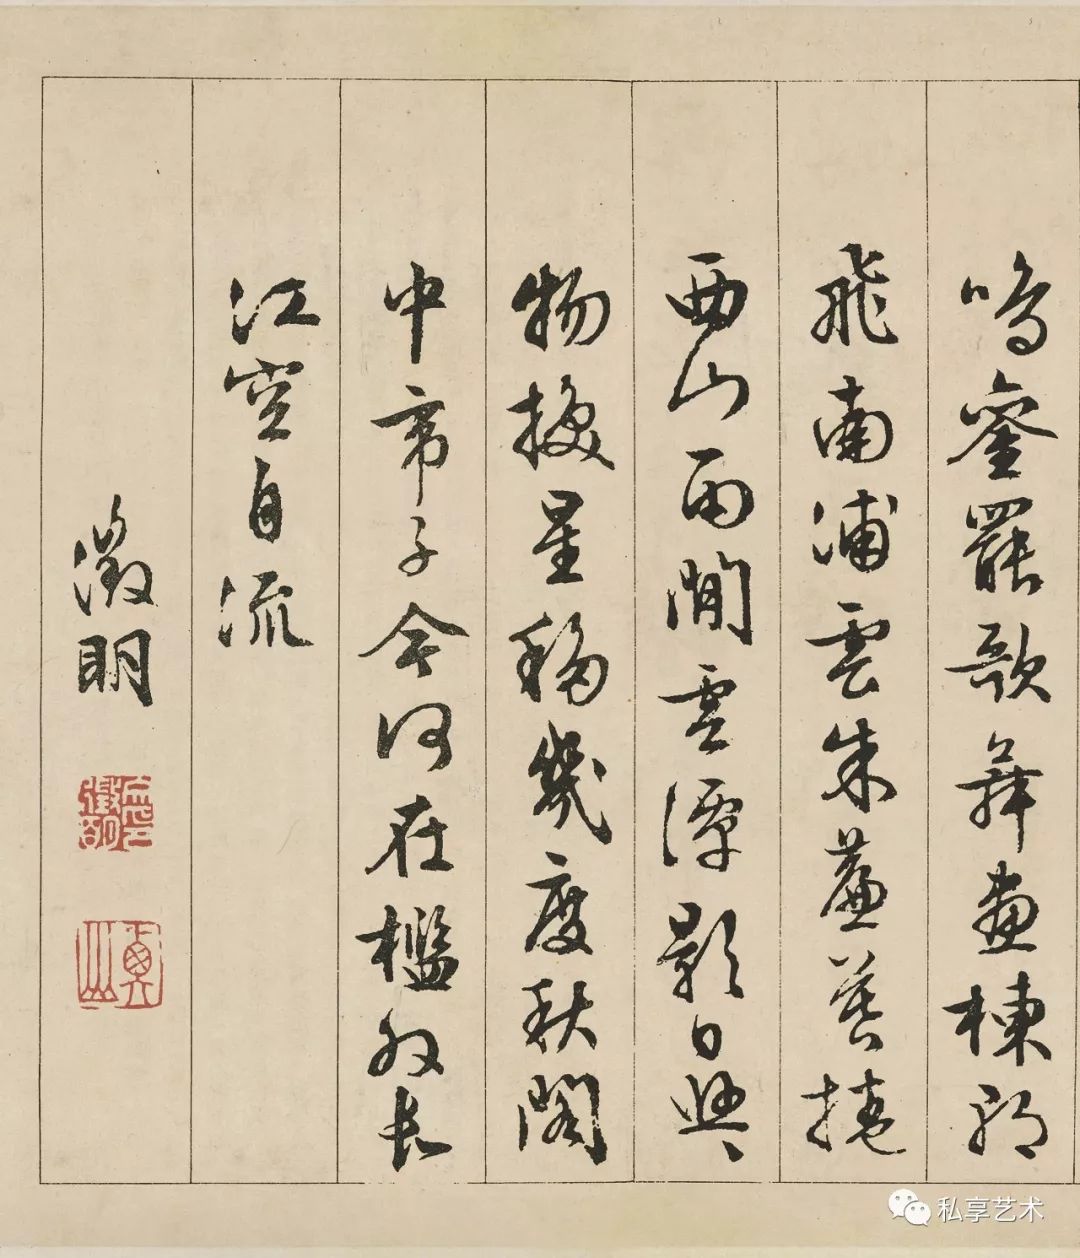 鳴鑾罷歌舞畫棟朝
飛南浦雲朱簾暮捲
西山雨閒雲潭影日悠々
物換星移幾度秋閣
中帝子今何在檻外長
江空自流
徵明
衡山
私享艺术